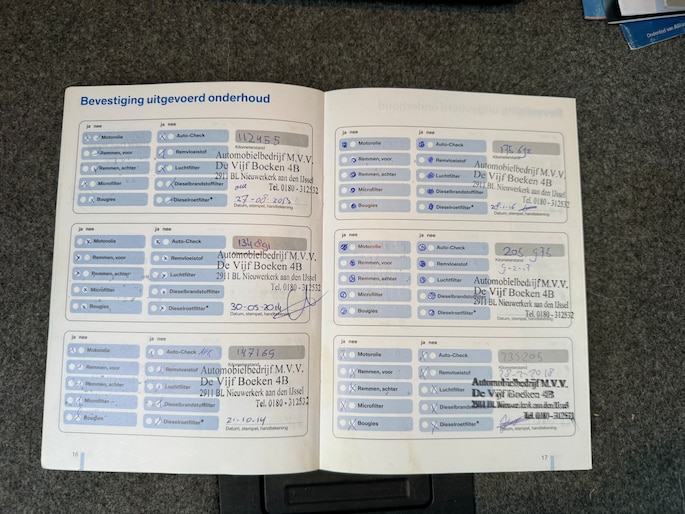 Bevestiging uitgevoerd onderhoud
ja nee ja nee
Motorolie Auto-Check 112455
Kilometerstand
Remmen, voor Remvloeistof Automobielbedrijf M.V.V.
Remmen, achter Luchtfilter De Vijf Boeken 4B
2911 BL Nieuwerkerk aan den IJssel
Microfilter Dieselbrandstoffilter Tel. 0180 - 312532
Bougies Dieselroetfilter* 27-08-2013
Datum, stempel, handtekening
ja nee ja nee
Motorolie Auto-Check 134891
Remmen, voor Remvloeistof Automobielbedrijf M.V.V.
Remmen, achter Luchtfilter De Vijf Boeken 4B
2911 BL Nieuwerkerk aan den IJssel
Microfilter Dieselbrandstoffilter Tel. 0180 - 312532
Bougies Dieselroetfilter* 30-05-2014
Datum, stempel, handtekening
ja nee ja nee
Motorolie Auto-Check 147165
Remmen, voor Remvloeistof Automobielbedrijf M.V.V.
Remmen, achter Luchtfilter De Vijf Boeken 4B
2911 BL Nieuwerkerk aan den IJssel
Microfilter Dieselbrandstoffilter Tel. 0180 - 312532
Bougies Dieselroetfilter* 21-10-14
Datum, stempel, handtekening
16
ja nee ja nee
Motorolie Auto-Check
Kilometerstand
Remmen, voor Remvloeistof Automobielbedrijf M.V.V.
Remmen, achter Luchtfilter De Vijf Boeken 4B
2911 BL Nieuwerkerk aan den IJssel
Microfilter Dieselbrandstoffilter Tel. 0180 - 312532
Bougies Dieselroetfilter*
Datum, stempel, handtekening
ja nee ja nee
Motorolie Auto-Check 205 975
Kilometerstand
Remmen, voor Remvloeistof
Automobielbedrijf M.V.V.
Remmen, achter Luchtfilter De Vijf Boeken 4B
2911 BL Nieuwerkerk aan den IJssel
Microfilter Dieselbrandstoffilter Tel. 0180 - 312532
Bougies Dieselroetfilter*
Datum, stempel, handtekening
ja nee ja nee
Motorolie Auto-Check 235205
Remmen, voor Remvloeistof 28-2-2018
Remmen, achter Luchtfilter Automobielbedrijf M.V.V.
De Vijf Boeken 4B
Microfilter Dieselbrandstoffilter 2911 BL Nieuwerkerk aan den IJssel
Tel. 0180 - 312532
Bougies Dieselroetfilter*
Datum, stempel, handtekening
17